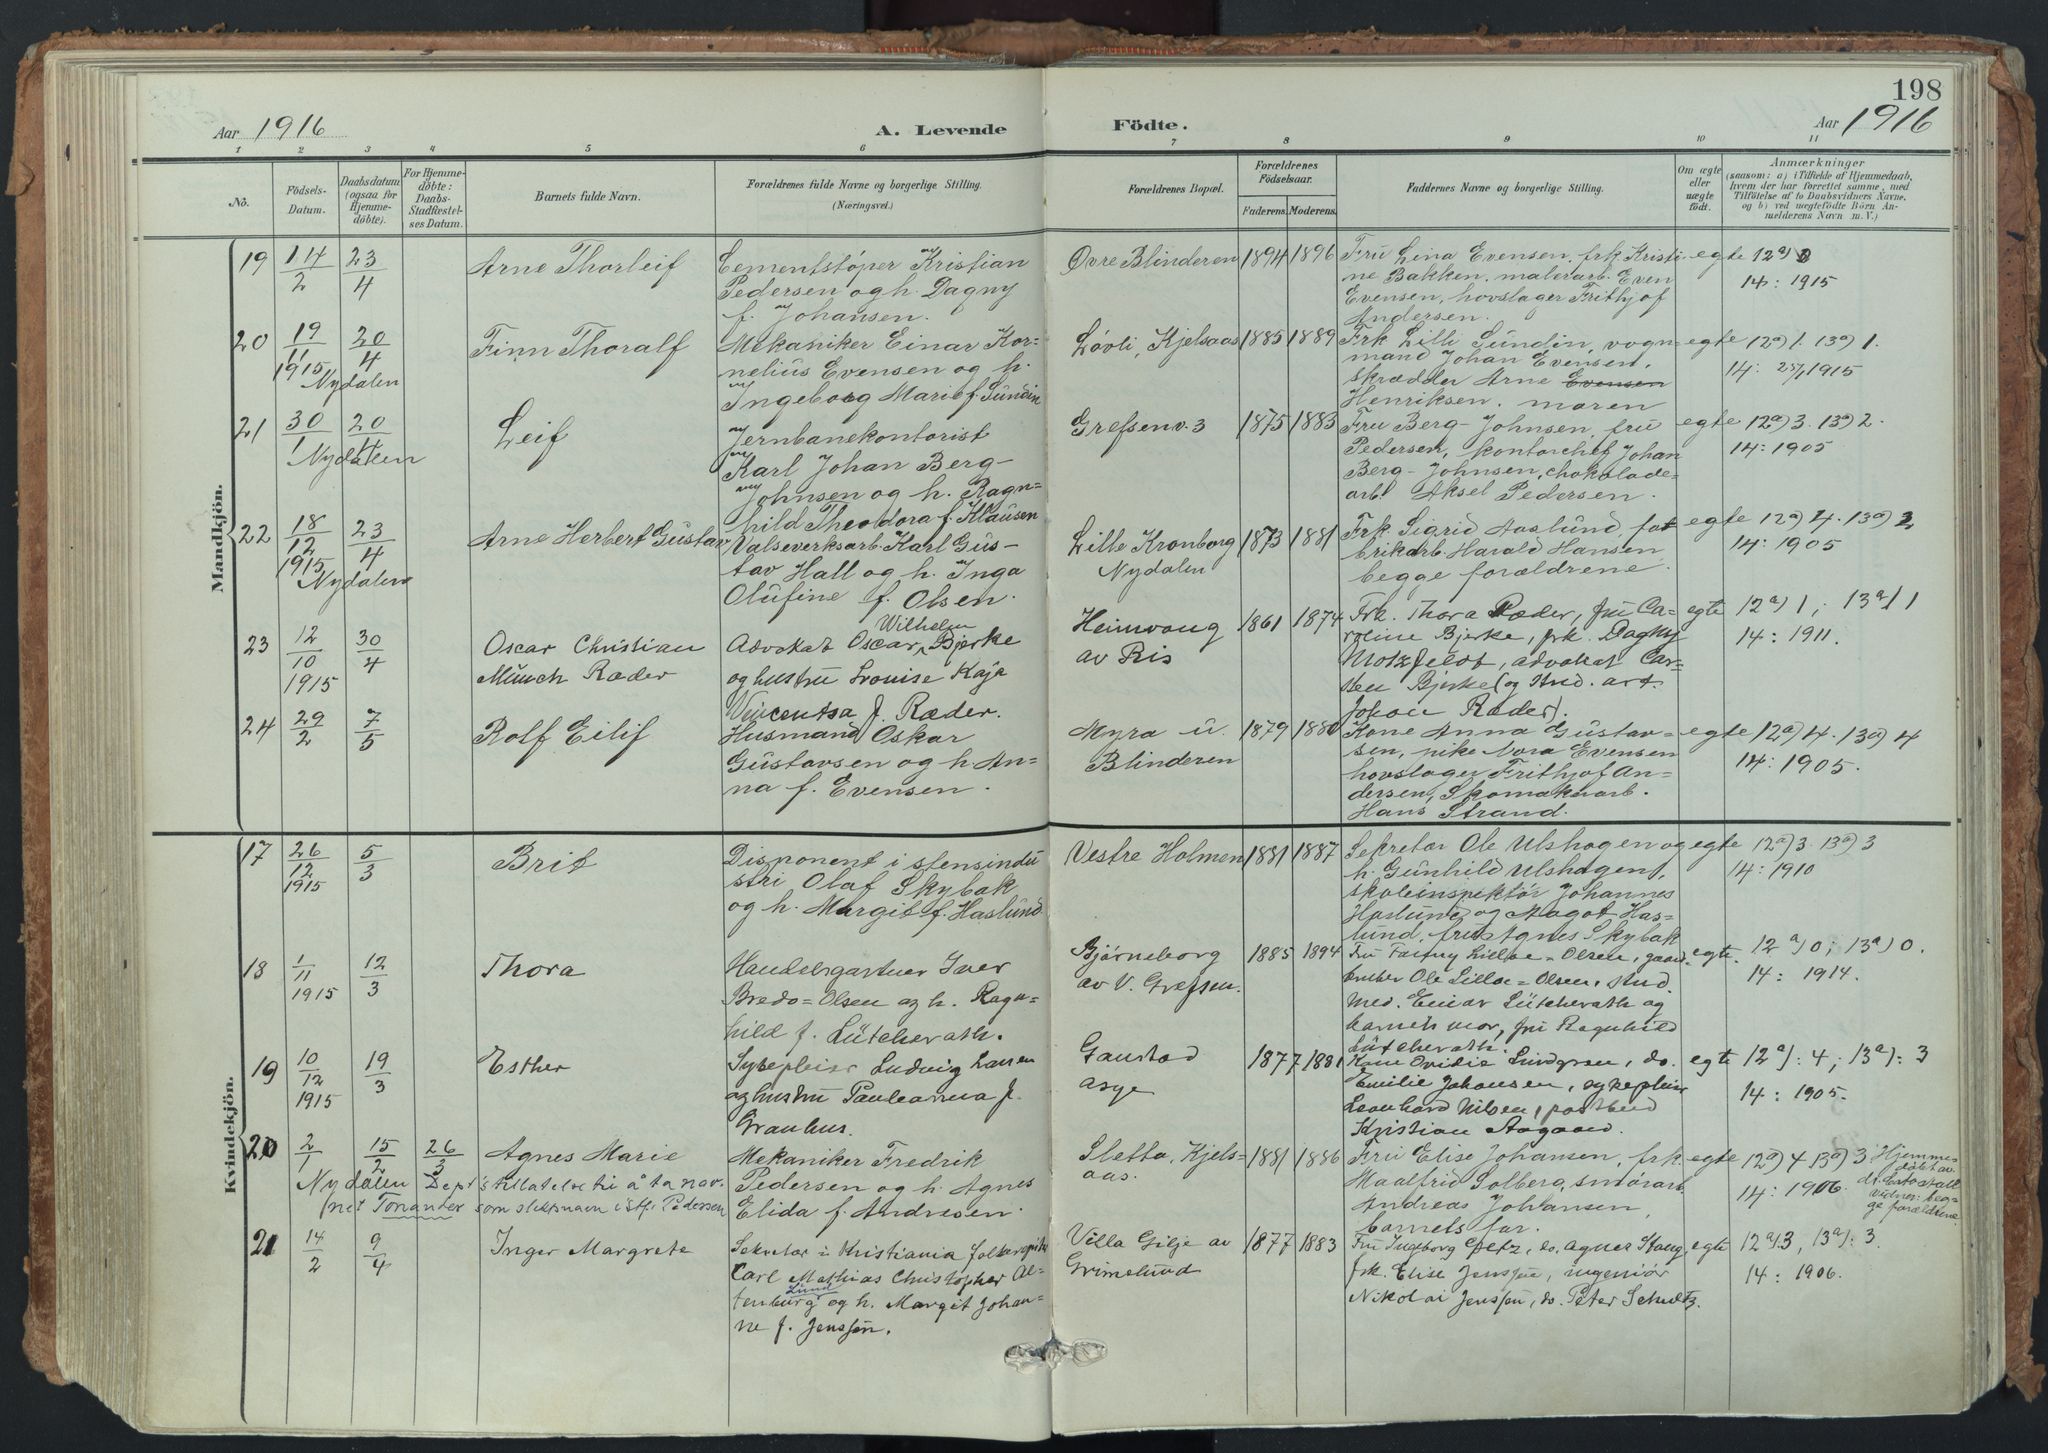 198
Aar 1916
A. Levende Födte.
Aar 1916
1 2 3 4 5 6 7 8 9 10 11
No.
Födsels-Datum.
Daabsdatum (ogsaa for Hjemme-döbte).
For Hjemme-döbte: Daabs-Stadfæstel-ses Datum.
Barnets fulde Navn.
Forældrenes fulde Navne og borgerlige Stilling.
(Næringsvei.)
Forældrenes Bopæl.
Forældrenes Födselsaar.
Faderens. Moderens.
Faddernes Navne og borgerlige Stilling.
Om ægte eller uægte födt.
Anmærkninger
(saasom: a) i Tilfælde af Hjemmedaab, hvem der har forrettet samme, med Tilföielse af to Daabsvidners Navne, og b) ved uægtefödte Börn An-melderens Navn m. V.)
Mandkjön.
19 14/2 23/4 Arne Thorleif
Cementstøper Kristian
Pedersen og h. Dagny
f. Johansen.
Øvre Blinderen 1894 1896
Fru Lina Evensen, frk Kristi-
ne Bakken, malerarb. Even
Evensen, hovslager Frithjof
Andersen.
egte 12a)
14: 1915
20 19/11 1915 20/4 Nydalen Finn Thoralf
Mekaniker Einar Kor-
nelius Evensen og h.
Ingeborg Marie f. Sundin
Løvli, Kjelsaas 1885 1889
Frk Lilli Sundin, vogn-
mand Johan Evensen,
skrædder Arne Evensen
Henriksen. moren
egte 12a) 1. 13a) 1.
14: 1915
21 30/1 20/4 Nydalen Leif
Jernbanekontorist
Karl Johan Berg-
Johnsen og h. Ragn-
hild Theodora f. Klausen
Grefsenv. 3 1875 1883
Fru Berg-Johnsen, fru
Pedersen, kontorchef Johan
Berg-Johnsen, chokolade-
arb. Aksel Pedersen.
egte 12a) 3. 13a) 2.
14: 1905
22 18/12 1915 23/4 Nydalen Arne Herbert Gustav
Valseverksarb. Karl Gus-
tav Hall og h. Inga
Olufine f. Olsen.
Lille Kronborg
Nydalen
1873 1881
Frk. Sigrid Aaslund, fa-
brikarb. Harald Hansen
begge forældrene.
egte 12a) 4. 13a) 2
14: 1905
23 12/10 1915 30/4
Oscar Christian
Münch Ræder
Advokat Oscar Wilhelm Bjerke
og hustru Lovise Kaja
Vincentsa f. Ræder.
Heimvang
av Ris
1861 1874
Frk. Thora Ræder, fru Ca-
roline Bjerke, frk. Dagny
Motzfeldt, advokat Car-
sten Bjerke (og stud. art.
Johan Ræder).
egte 12a) 1; 13a) 1
14: 1911.
24 29/2 7/5 Rolf Eilif
Husmand Oskar
Gustavsen og h An-
na f. Evensen.
Myra u.
Blinderen
1879 1880
Kone Anna Gustav-
sen, pike Nora Evensen
hovslager Frithjof An-
dersen, Skomakerarb.
Hans Strand.
egte 12a) 4. 13a) 4
14: 1905.
Kvindekjön.
17 26/12 1915 5/3 Brit
Disponent i stensindu
stri Olaf Skybak
og h. Margit f. Haslund
Vestre Holmen 1881 1887
Sekretær Ole Ulshagen og
h. Gunhild Ulshagen,
skoleinspektør Johannes
Haslund og Magot Has-
lund, fru Agnes Skybak
egte 12a) 3. 13a) 3
14: 1910
18 1/11 1915 12/3 Thora
Handelsgartner Iver
Bredo-Olsen og h. Ragn-
hild f. Lütcherath.
Bjørneborg
av V. Grefsen.
1885 1894
Fru Fanny Lilloe-Olsen, gaard-
bruker Ole Lilloe-Olsen, stud.
med. Einar Lütcherath og
barnets mor, fru Ragnhild
Lütcherath.
egte. 12a) 0; 13a) 0.
14: 1914.
19 10/12 1915 19/3 Esther
Sykepleier Ludvig Larsen
og hustru f.
Granhus.
Gaustad
asyl
1877 1881
Kone Lindgren, do.
Emilie Johansen, sykepleier
Leonhard Nilsen, postbud
Kristian Aagaard.
egte 12a): 4; 13a): 3
14: 1905.
20 2/1 15/2 26/3 Agnes Marie
Nydalen Dept's tillatelse til å ta nav-
net Tonander som slektsnavn istf. Pedersen
Mekaniker Fredrik
Pedersen og h. Agnes
Elida f. Andresen.
Sletta, Kjels-
aas.
1881 1886
Fru Elise Johansen, frk.
Maalfrid Solberg, smørarb.
Andreas Johansen,
barnets far.
egte 12a) 4 13a) 3
14: 1906.
Hjemme-
døbt av
vidner: beg-
ge forældrene.
21 14/2 9/4 Inger Margrete
Sekretær i Kristiania
Carl Mathias Christopher Al-
tenburg Lund og h. Margit Johan-
ne f. Jenssen.
Villa Gilje av
Grimelund
1877 1883
Fru Ingeborg Getz, do. Agnes
frk. Elise Jenssen, ingeniør
Nikolai Jenssen, do. Peter Schultz.
egte 12a): 3, 13a): 3.
14: 1906.